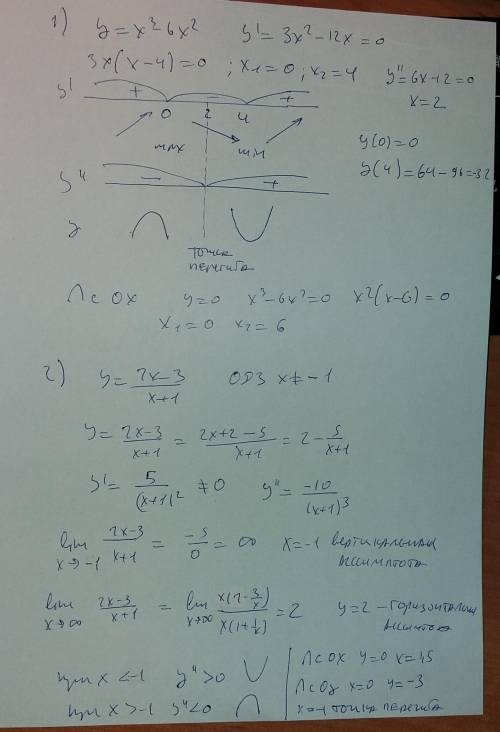 1) y = x³-6x² y' = 3x²-12x = 0
3x(x-4)=0 ; x₁=0 ; x₂=4 y''=6x-12=0
x=2
y' + - +
0 2 4
max min
y(0)=0
y(4)=64-96=-32
y'' - +
y
точка
перегиба
∩ с OX y=0 x³-6x²=0 x²(x-6)=0
x₁=0 x₂=6
2) y = (2x-3)/(x+1) ОДЗ x≠-1
y = (2x-3)/(x+1) = (2x+2-5)/(x+1) = 2 - 5/(x+1)
y' = 5/(x+1)² ≠0 y'' = -10/(x+1)³
lim x→-1 (2x-3)/(x+1) = -5/0 = ∞ x=-1 вертикальная
ассимптота
lim x→∞ (2x-3)/(x+1) = lim x→∞ x(2-3/x)/x(1+1/x) = 2 y=2 - горизонтальная
ассимптота
при x<-1 y''>0 ∪
при x>-1 y''<0 ∩
∩ с OX y=0 x=1,5
∩ с Oy x=0 y=-3
x=-1 точка перегиба